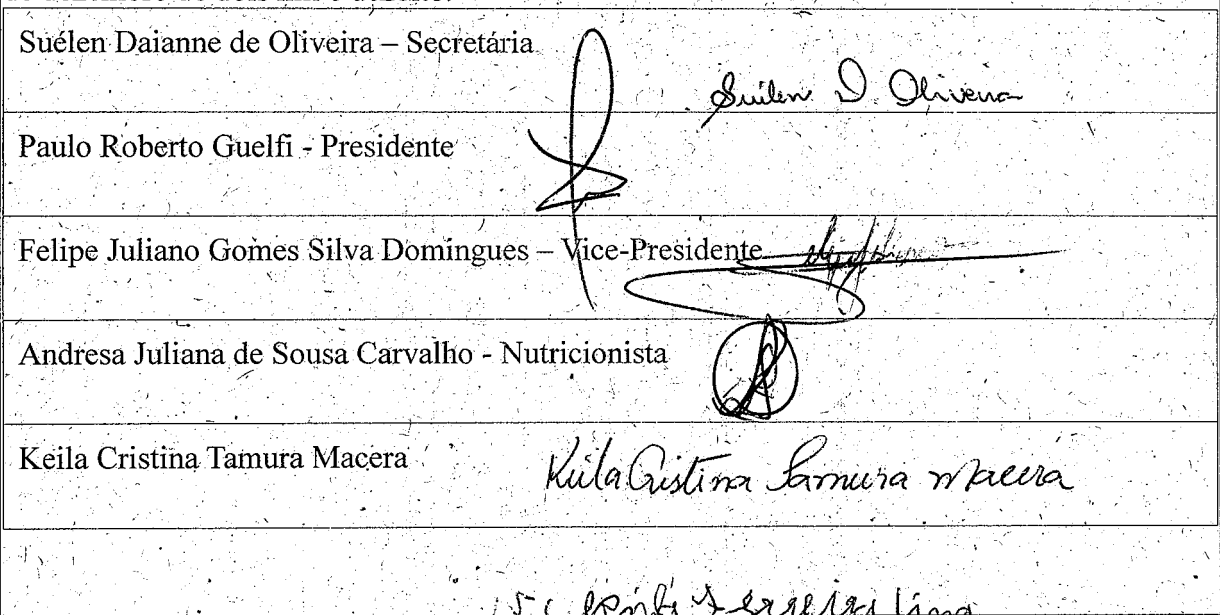 Suélen Daianne de Oliveira – Secretária
Suélen D. Oliveira
Paulo Roberto Guelfi - Presidente
Felipe Juliano Gomes Silva Domingues – Vice-Presidente
Andresa Juliana de Sousa Carvalho - Nutricionista
Keila Cristina Tamura Macera
Keila Cristina Tamura Macera